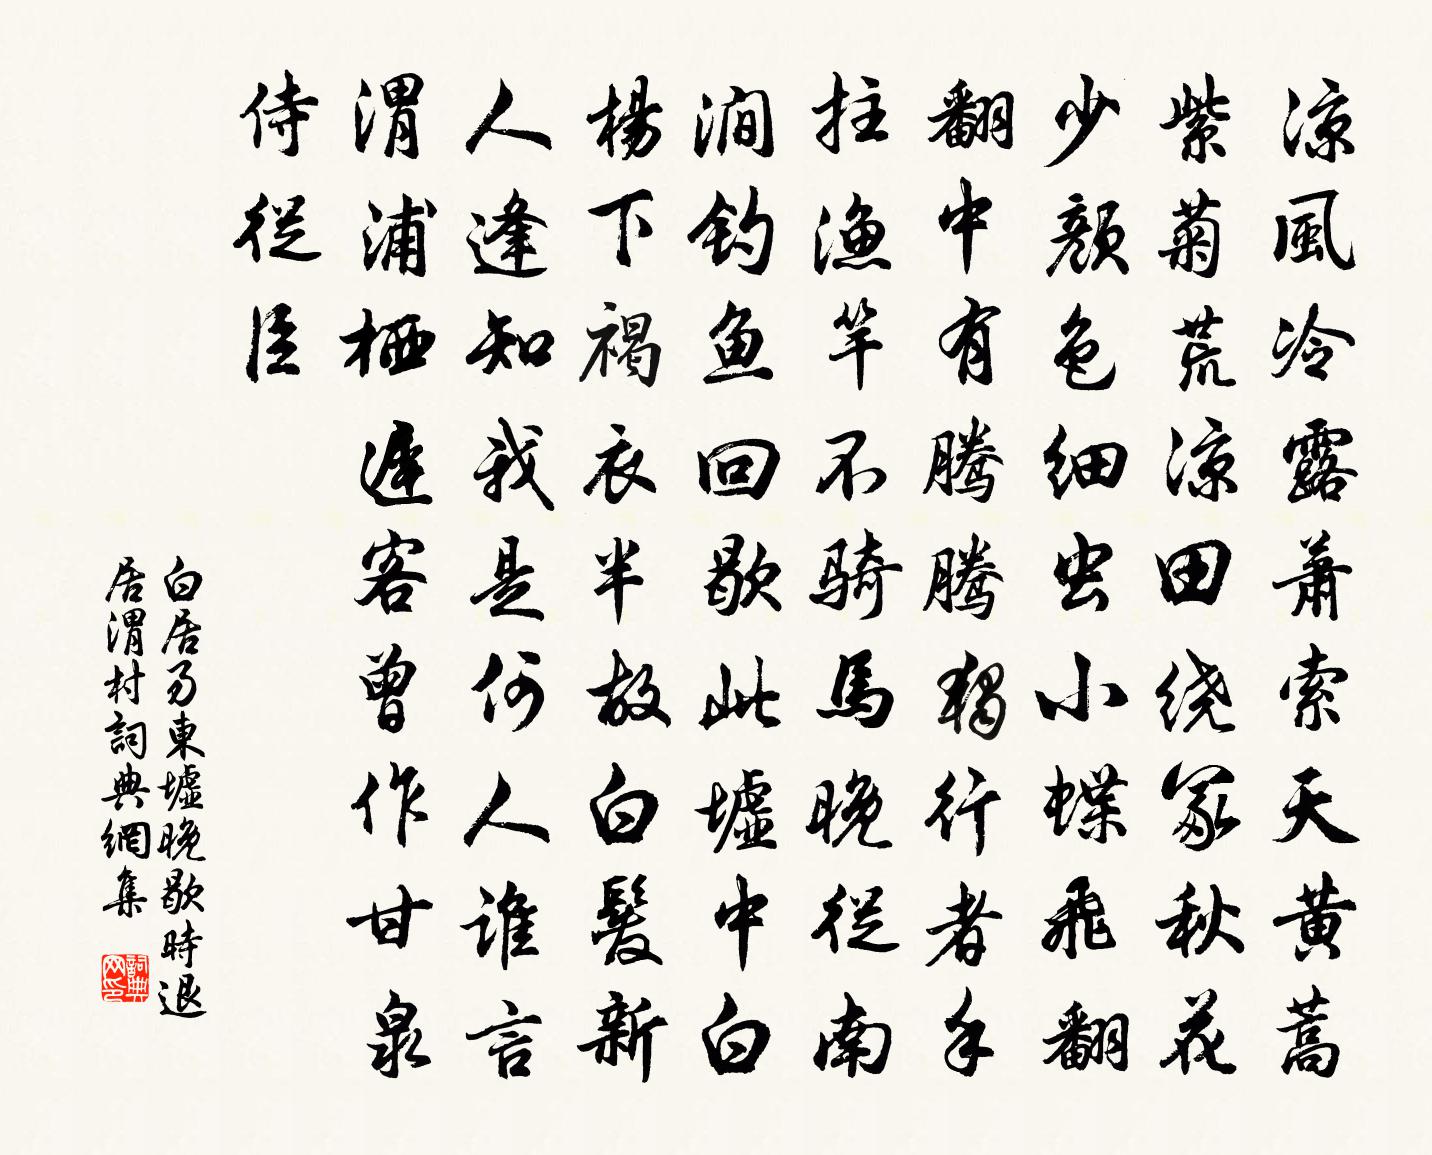 涼風冷露蕭索天黄蒿
紫菊荒涼田绕冢秋花
少颜色细虫小蝶飛翻
翻中有腾腾獨行者手
拄漁竿不骑馬晚從南
澗钓鱼回歇此墟中白
楊下褐衣半故白髮新
人逢知我是何人誰言
渭浦栖遲客曾作甘泉
侍從臣
白居易東墟晚歇時退
居渭村詞典網集
詞典网印